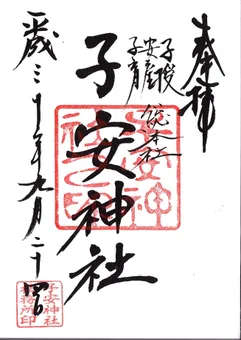 奉拝
子授
安産
子育
総本社
子安神社
平成三十年九月二十四日
子安神社
社務所印